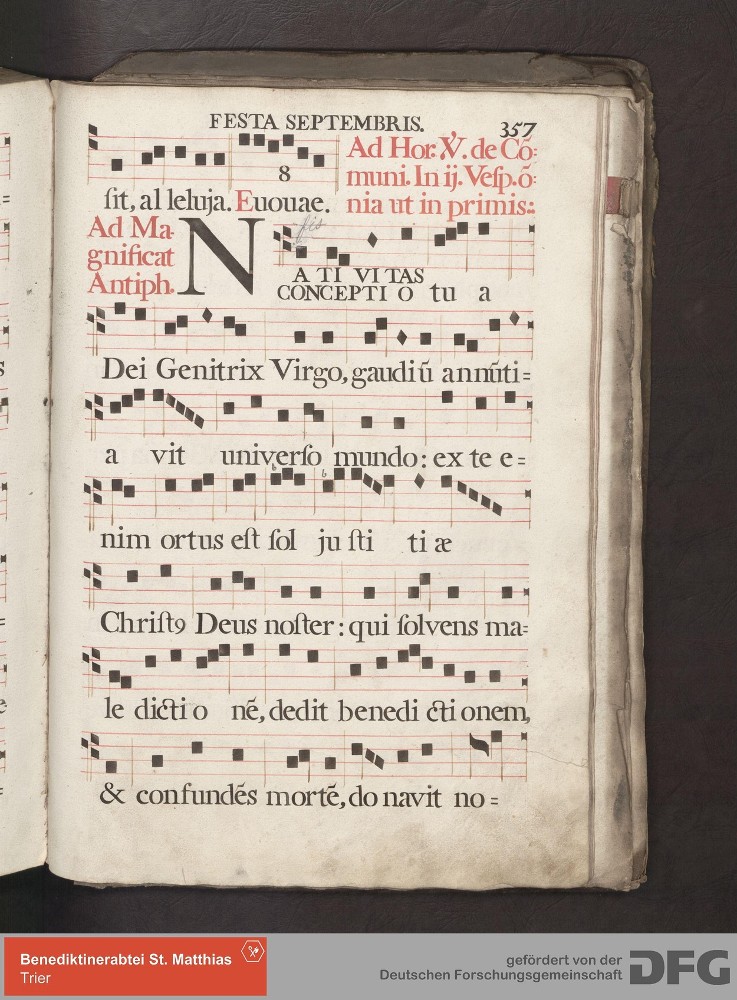 FESTA SEPTEMBRIS. 357
8
sit, al leluja. Euouae.
Ad Hor: ℣. de Cō:
muni. In ij. Vesp. ō:
nia ut in primis::
Ad Ma-
gnificat
Antiph.
fis
NA TI VI TAS
CONCEPTI O tu a
Dei Genitrix Virgo, gaudiū annūti=
a vit universo mundo: ex te e=
nim ortus est sol ju sti ti æ
Christ9 Deus noster: qui solvens ma=
le dicti o nē, dedit benedi cti onem,
& confundēs mortē, do navit no=
Benediktinerabtei St. Matthias
Trier
gefördert von der
Deutschen Forschungsgemeinschaft DFG